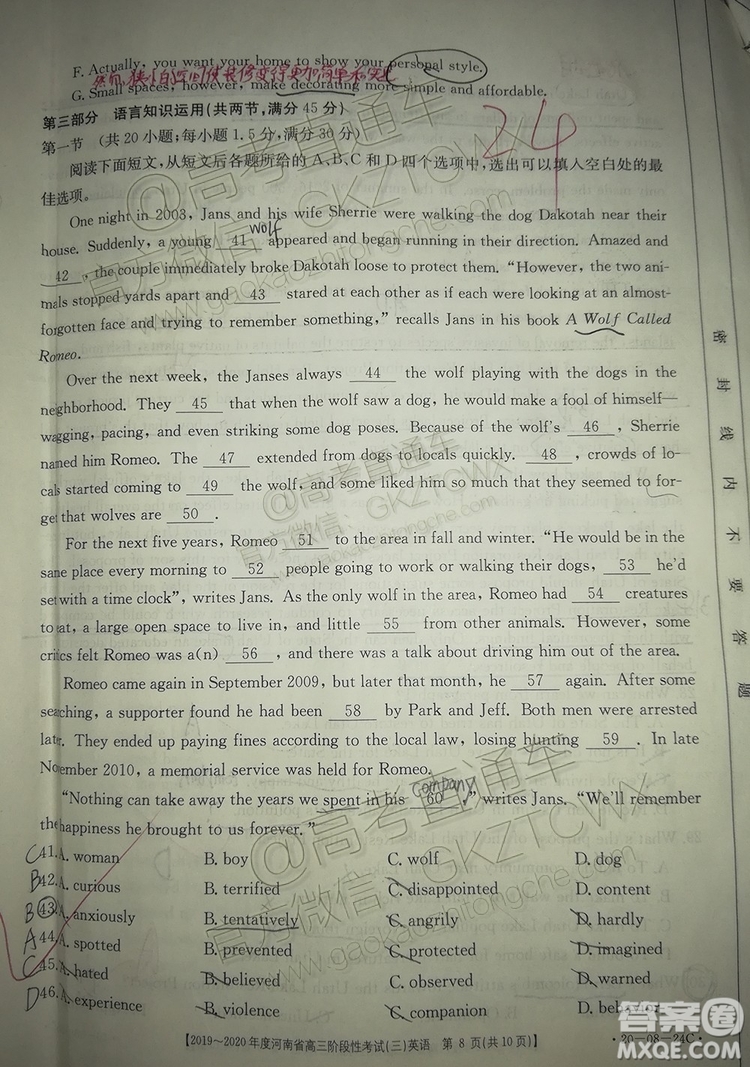 F. Actually, you want your home to show your personal style.
G. Small spaces, however, make decorating more simple and affordable.
第三部分 语言知识运用(共两节,满分 45 分)
24
第一节 (共 20 小题;每小题 1.5 分,满分 30 分)
阅读下面短文,从短文后各题所给的 A、B、C 和 D 四个选项中,选出可以填入空白处的最
佳选项。
One night in 2003, Jans and his wife Sherrie were walking the dog Dakotah near their
wolf
house. Suddenly, a young 41 appeared and began running in their direction. Amazed and
42 , the couple immediately broke Dakotah loose to protect them. “However, the two ani-
mals stopped yards apart and 43 stared at each other as if each were looking at an almost-
forgotten face and trying to remember something,” recalls Jans in his book A Wolf Called
Romeo.
Over the next week, the Janses always 44 the wolf playing with the dogs in the
neighborhood. They 45 that when the wolf saw a dog, he would make a fool of himself—
wagging, pacing, and even striking some dog poses. Because of the wolf's 46 , Sherrie
named him Romeo. The 47 extended from dogs to locals quickly. 48 , crowds of lo-
cals started coming to 49 the wolf, and some liked him so much that they seemed to for-
get that wolves are 50 .
For the next five years, Romeo 51 to the area in fall and winter. “He would be in the
same place every morning to 52 people going to work or walking their dogs, 53 he'd
set with a time clock”, writes Jans. As the only wolf in the area, Romeo had 54 creatures
to eat, a large open space to live in, and little 55 from other animals. However, some
critics felt Romeo was a(n) 56 , and started a talk about driving him out of the area.
Romeo came again in September 2009, but later that month, he 57 again. After some
searching, a supporter found he had been 58 by Park and Jeff. Both men were arrested
later. They ended up paying fines according to the local law, losing hunting 59 . In late
November 2010, a memorial service was held for Romeo.
company
“Nothing can take away the years we spent in his 60 ,” writes Jans. “We'll remember
the happiness he brought to us forever.”
C 41. A. woman B. boy C. wolf D. dog
B 42. A. curious B. terrified C. disappointed D. content
B 43. A. anxiously B. tentatively C. angrily D. hardly
A 44. A. spotted B. prevented C. protected D. imagined
C 45. A. hated B. believed C. observed D. warned
D 46. A. experience B. violence C. companion D. behavior
【2019~2020 年度河南省高三阶段性考试(三)英语 第 8 页(共 10 页)】
·20-08-24C·
密 封 线 内 不 要 答 题
@高考直通车
官方微信:GKZTCWX
www.gaokaozhitongche.com
@高考直通车
官方微信:GKZTCWX
@高考直通车
官方微信:GKZTCWX
www.gaokaozhitongche.com
答案圈
MXQE.COM